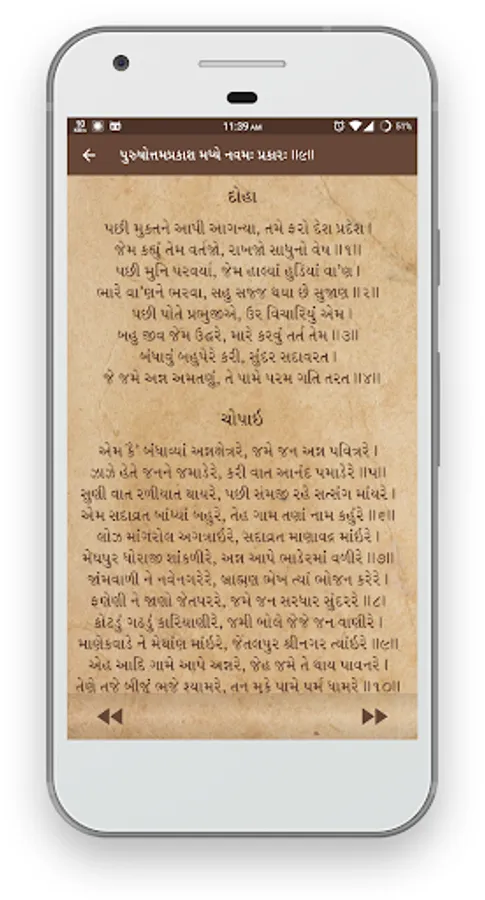 11:39 AM
51%
પુરુષોત્તમપ્રકાશ મધ્યે નવમઃ પ્રકારઃ ॥૯॥
દોહા
પછી મુક્તને આપી આગન્યા, તમે ફરો દેશ પ્રદેશ ।
જેમ કહ્યું તેમ વર્તજો, રાખજો સાધુનો વેષ ॥૧॥
પછી મુનિ પરવર્યા, જેમ હાલ્યાં હુડિયાં વા'ણ ।
ભારે વા'ણને ભરવા, સહુ સજ્જ થયા છે સુજાણ ॥૨॥
પછી પોતે પ્રભુજીએ, ઉર વિચારિયું એમ ।
બહુ જીવ જેમ ઉદ્ધરે, મારે કરવું તર્ત તેમ ॥૩॥
બંધાવું બહુપેરે કરી, સુંદર સદાવરત ।
જે જમે અન્ન અમતણું, તે પામે પરમ ગતિ તરત ॥૪॥
ચોપાઇ
એમ કૈ' બંધાવ્યાં અન્નક્ષેત્રરે, જમે જન અન્ન પવિત્રરે ।
ઝાઝે હેતે જનને જમાડેરે, કરી વાત આનંદ પમાડેરે ॥૫॥
સુણી વાત રળીયાત થાયરે, પછી સમજી રહે સત્સંગ માંયરે ।
એમ સદાવ્રત બાંધ્યાં બહુરે, તેહ ગામ તણાં નામ કહુંરે ॥૬॥
લોઝ માંગરોલ અગત્રાઇરે, સદાવ્રત માણાવદ્ર માંઇરે ।
મેઘપુર ધોરાજી શાંકળીરે, અન્ન આપે ભાડેરમાં વળીરે ॥૭॥
જાંમવાળી ને નવેનગરેરે, બ્રાહ્મણ ભેખ ત્યાં ભોજન કરેરે ।
ફણેણી ને જાણો જેતપરરે, જમે જન સરધાર સુંદરરે ॥૮॥
કોટડું ગઢડું કારિયાણીરે, જમી બોલે જેજે જન વાણીરે ।
માણેકવાડે ને મેથાંણ માંઇરે, જેતલપુર શ્રીનગર ત્યાંઇરે ॥૯॥
એહ આદિ ગામે આપે અન્નરે, જેહ જમે તે થાય પાવનરે ।
તેણે તજે બીજું ભજે શ્યામરે, તન મુકે પામે પર્મ ધામરે ॥૧૦॥